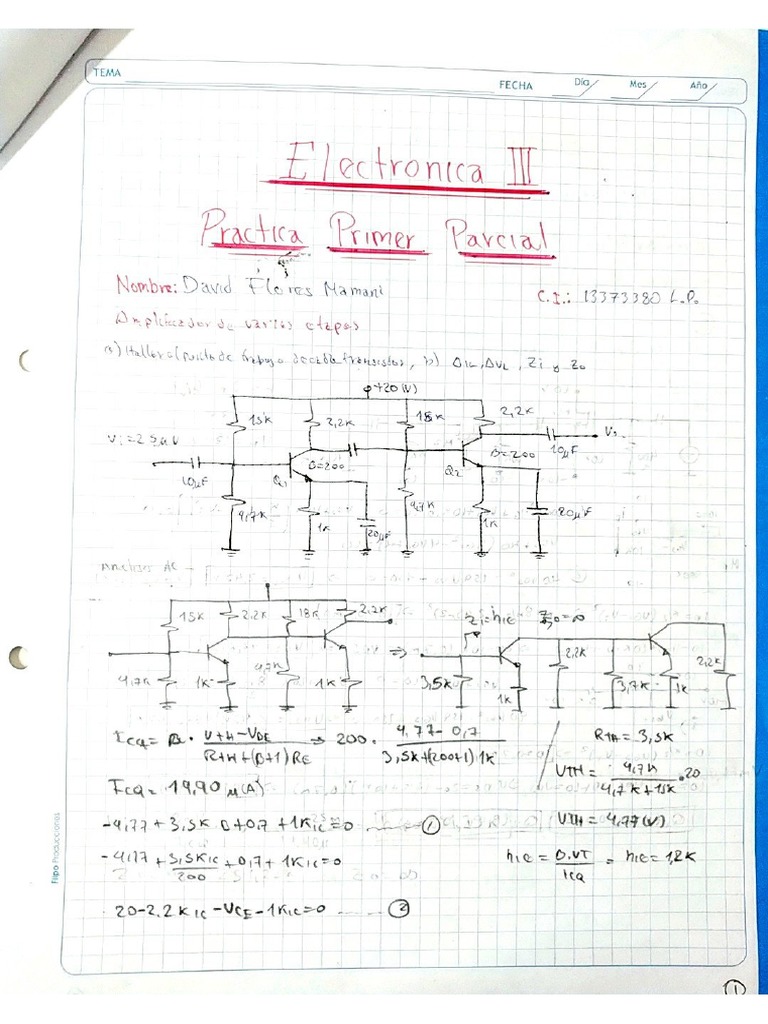 TEMA
FECHA Día Mes Año
Electronica III
Practica Primer Parcial
Nombre: David Flores Mamani
C.I.: 13373380 L.P.
Amplificador de varios etapas
a) Hallar el punto de trabajo de cada transistor, b) ΔiL, ΔVL, Zi y Zo
+20(V)
15K 2,2K 18K 2,2K
10μF
β=200
Q1
β=200
Q2
10μF
4,7K 1K 20μF 4,7K 1K 20μF
Analisis AC
15K 2,2K 18K 2,2K
Zi=hie
4,7K 1K 4,7K 1K
⇒
3,5K 1K 2,2K 3,7K 1K 2,2K
ICQ = β · VTH-VBE / RTH+(β+1)RE → 200 · 4,77-0,7 / 3,5K+(200+1)1K
RTH = 3,5K
VTH = 4,7K / 4,7K+15K · 20
ICQ = 19,90 μ(A)
VTH = 4,77(V)
-4,77 + 3,5K iB + 0,7 + 1K iC = 0 ------ ①
-4,77 + 3,5K iC / 200 + 0,7 + 1K iC = 0
hie = β.VT / ICQ = hie = 1,2K
20-2,2K iC - VCE - 1K iC = 0 ------ ②
Filpo Producciones
1